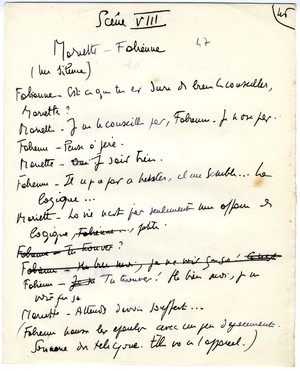 45
Scène VIII
Mariette - Fabienne
47
(un silence)
Fabienne - Est-ce que tu es sûre de bien la conseiller,
Mariette ?
Mariette - Je ne la conseille pas, Fabienne - Je n'ose pas..
Fabienne - Pense à Jéré
Mariette - Je sais bien.
Fabienne - Il n'y a pas à hésiter, il me semble... La
logique...
Mariette - La vie n'est pas seulement une affaire de
logique, petite.
Fabienne - Tu trouves ?
Fabienne - Eh bien moi, je ne vois
Fabienne - Tu trouves ! Eh bien moi, je
vois
Mariette - Attends d'avoir souffert...
(Fabienne hausse les épaules avec un peu d'agacement.
Sonnerie du téléphone. Elle va à l'appareil.)